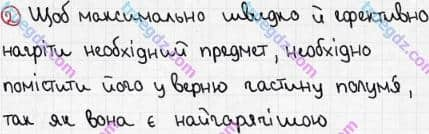 2) Щоб максимально швидко й ефективно
нагріти необхідний предмет, необхідно
помістити його у верню частину полум'я,
так як вона є найгарячішою